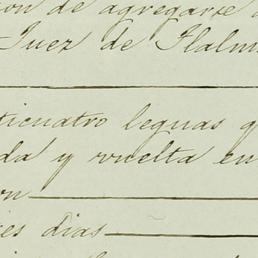 ion de agregarse a
Juez de Tlalm
ticuatro leguas q
da y vuelta en
on
es dias